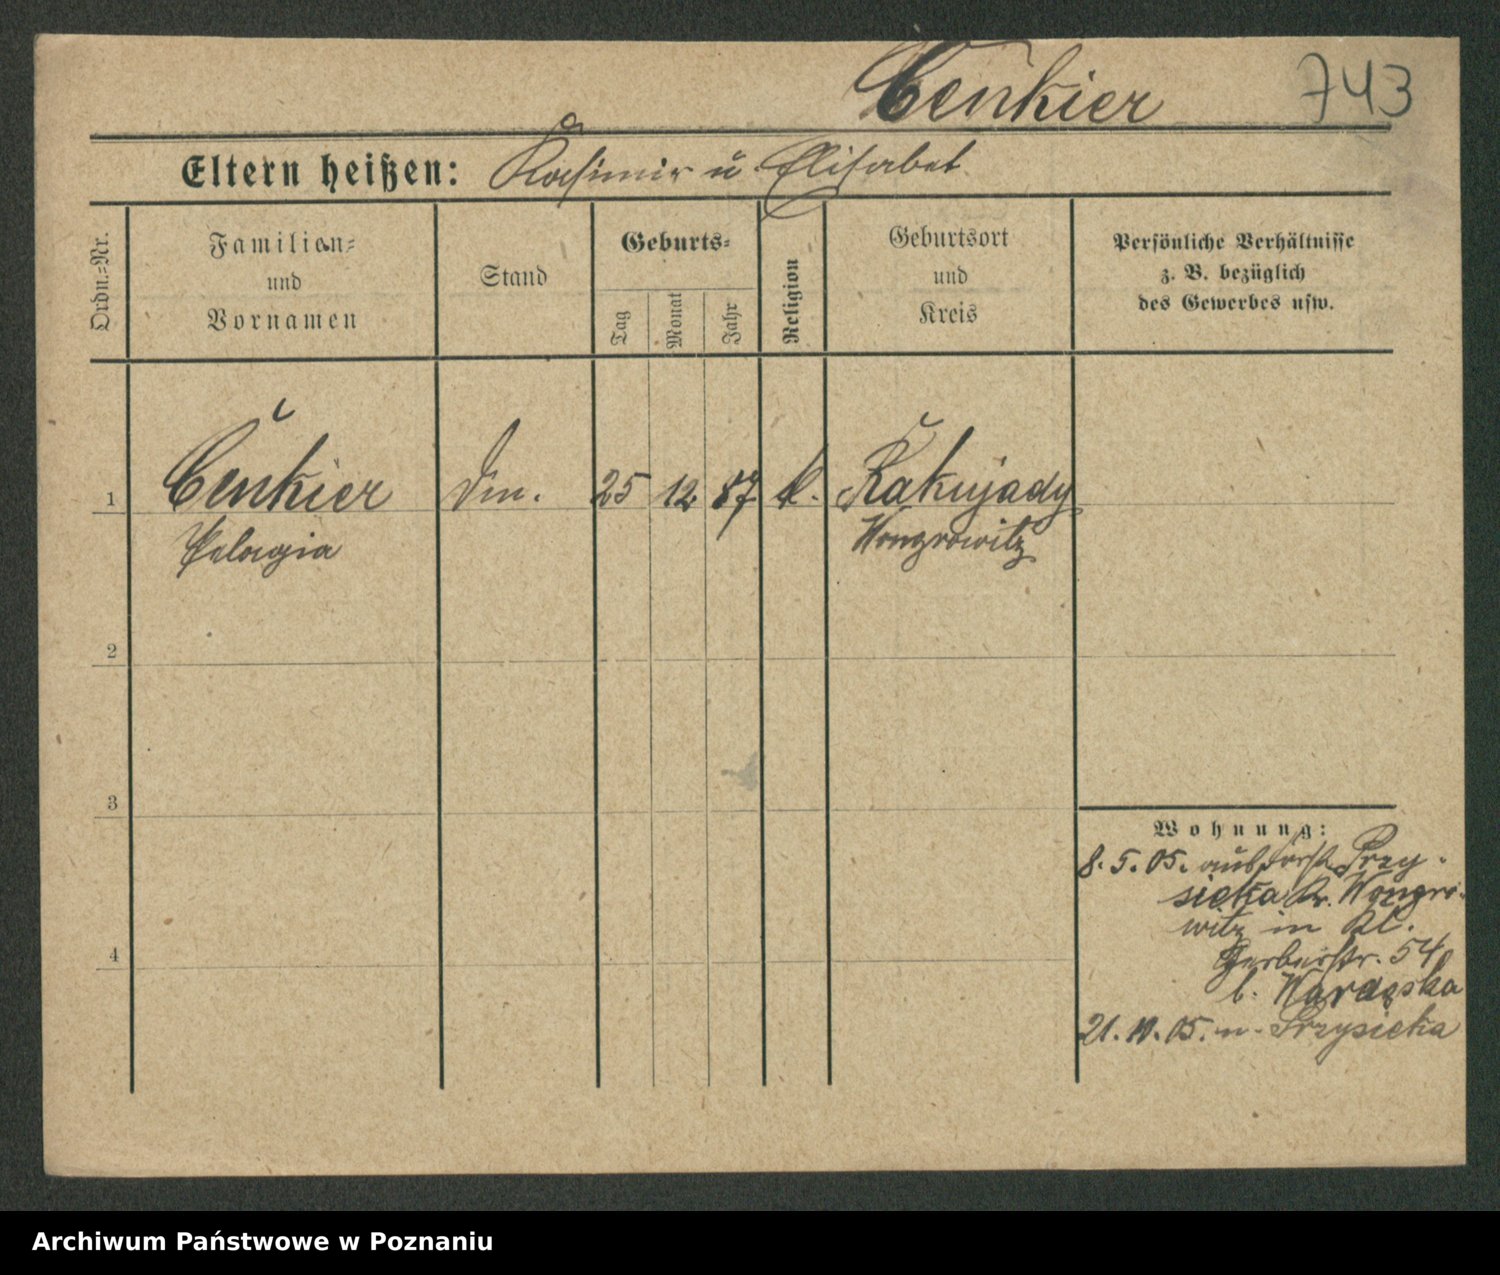 Cenkier 743
Eltern heißen: Kasimir u. Elisabet
Ordn.=Nr.
Familien=
und
Vornamen
Stand
Geburts=
Tag
Monat
Jahr
Religion
Geburtsort
und
Kreis
Persönliche Verhältnisse
z. B. bezüglich
des Gewerbes usw.
1 Cenkier 25 12. 87 k. Kakujady
Pelagia Wongrowitz
2
3
4
Wohnung:
8. 5. 05. aus Przy-
sieka Kr. Wongro-
witz in Kl.
Gerberstr. 54
b.
21. 10. 05. n. Przysieka
Archiwum Państwowe w Poznaniu